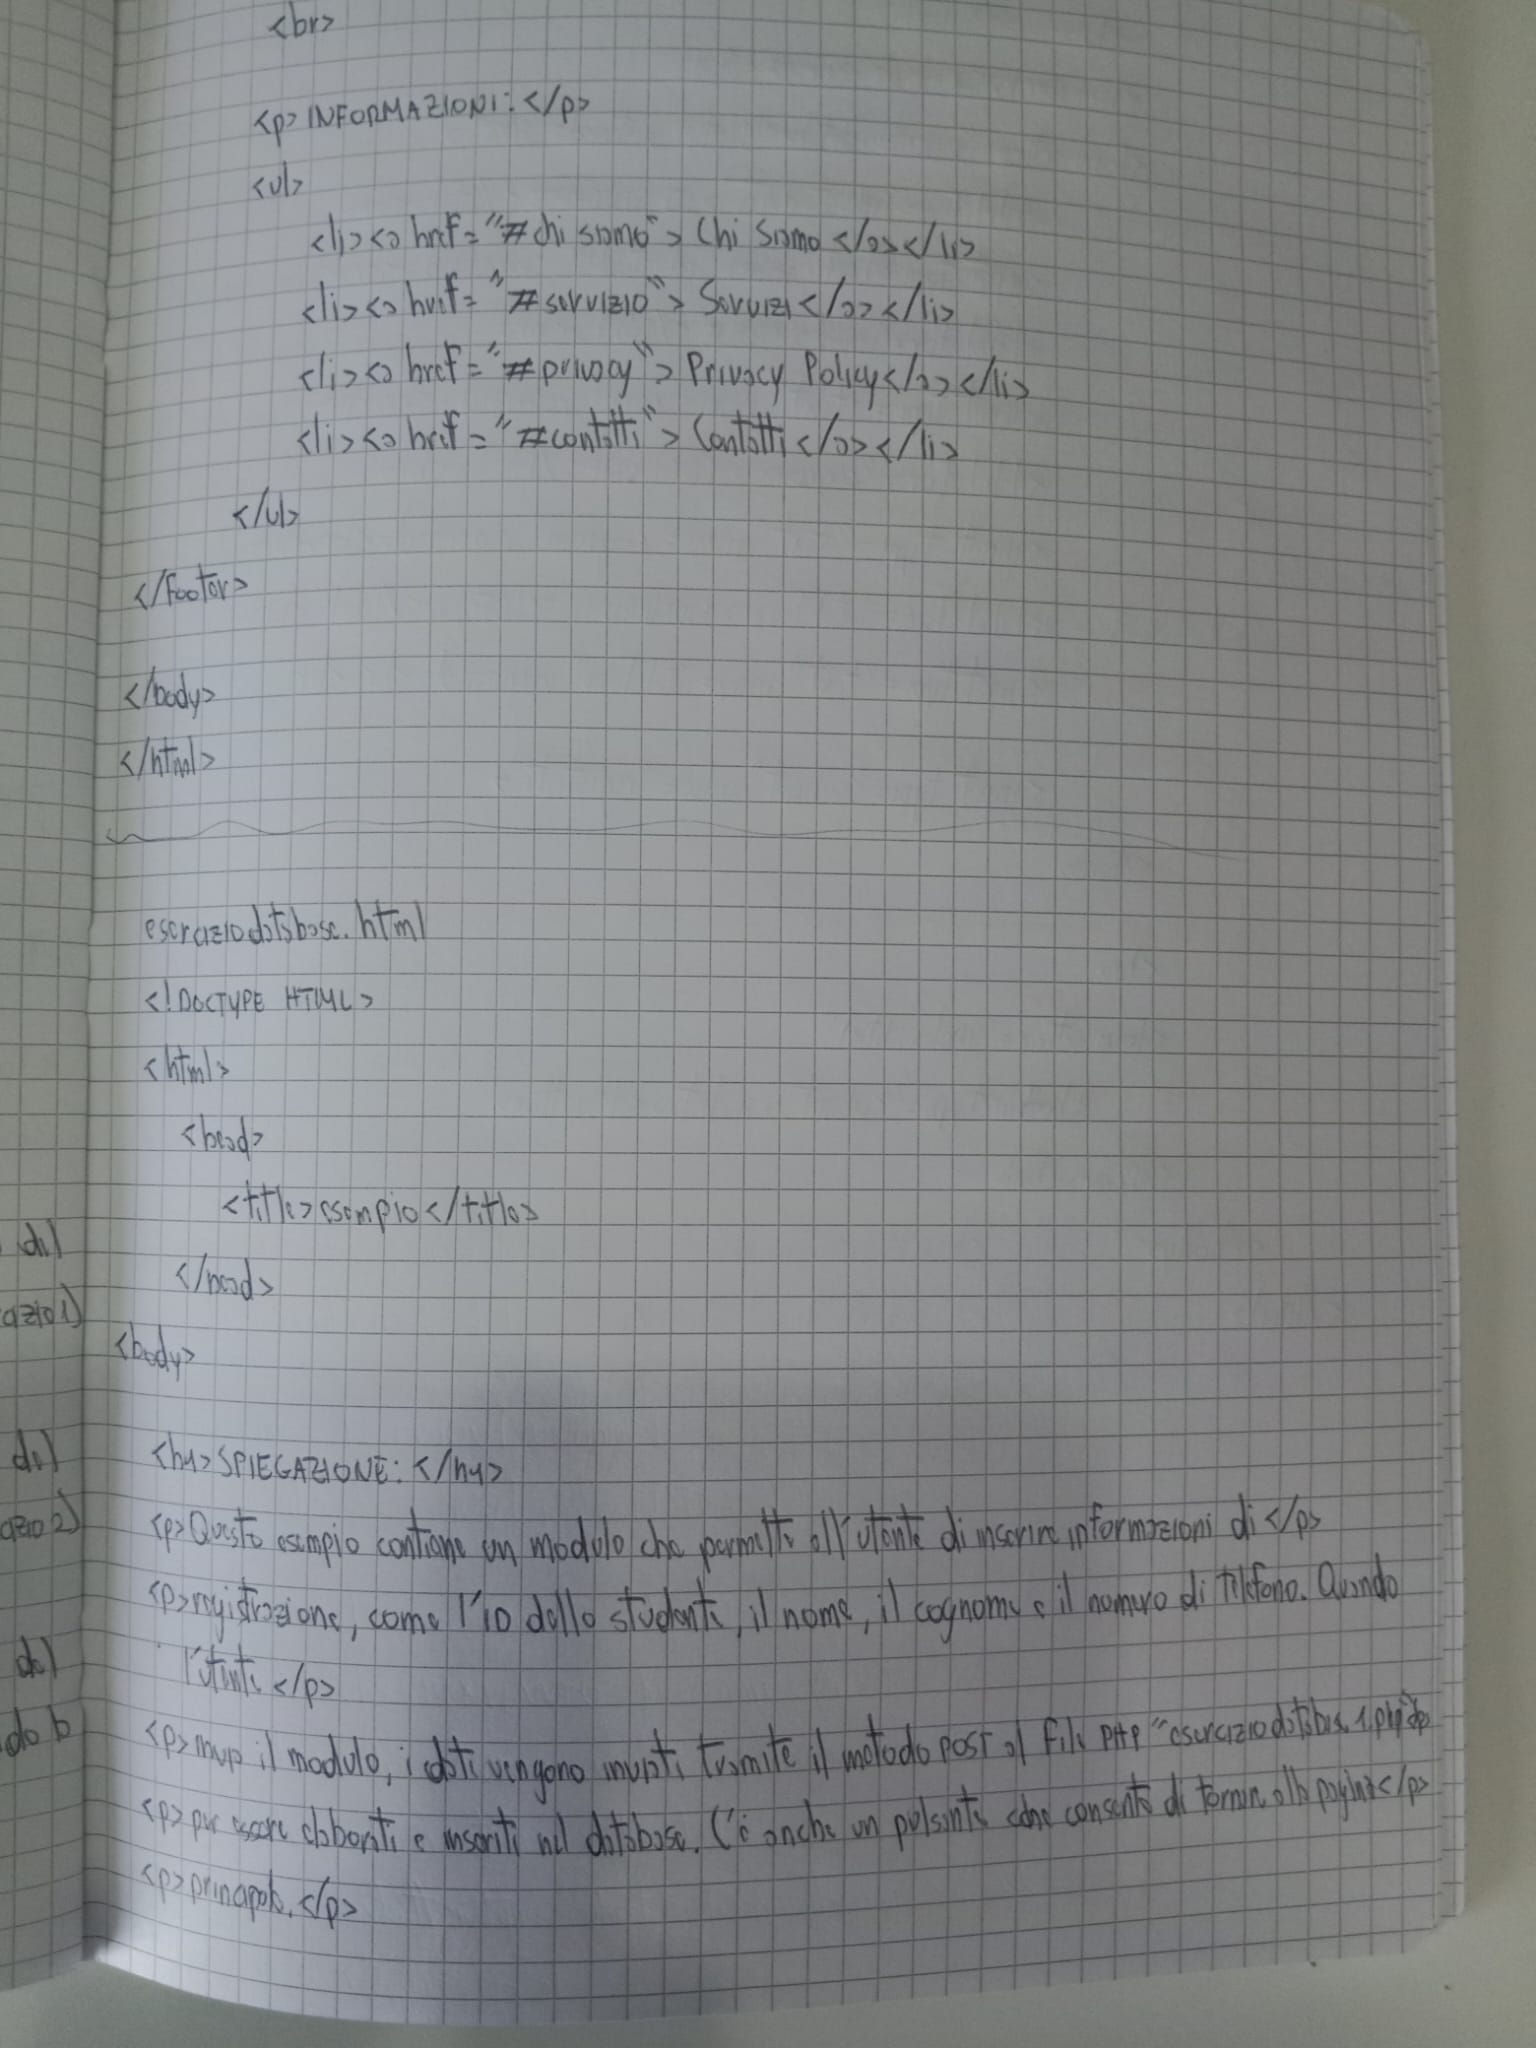 <br>
<p>INFORMAZIONI:</p>
<ul>
<li><a href="#chi siamo"> Chi Siamo </a></li>
<li><a href="#servizio"> Servizi </a></li>
<li><a href="#privacy"> Privacy Policy</a></li>
<li><a href="#contatti"> Contatti </a></li>
</ul>
</footer>
</body>
</html>
esercaziodatabase.html
<!DOCTYPE HTML>
<html>
<head>
<title>esempio</title>
</head>
<body>
<h1>SPIEGAZIONE:</h1>
<p>Questo esempio contiene un modulo che permette all'utente di inserire informazioni di </p>
<p>registrazione, come l'ID dello studente, il nome, il cognome e il numero di telefono. Quando
l'utente </p>
<p> il modulo, i dati vengono inviati tramite il metodo POST al file PHP "eserciziodatabase1.php"
<p>per essere elaborati e inseriti nel database. C'è anche un pulsante che consente di tornare alla pagina</p>
<p>principale.</p>
del
azio1)
del
azio2)
del
do b